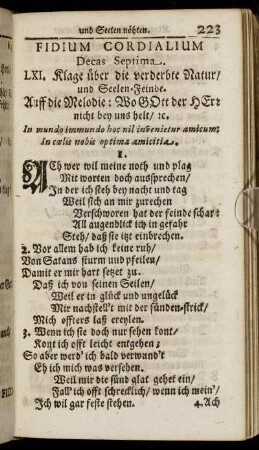 und Seelen nöhten. 223
FIDIUM CORDIALIUM
Decas Septima.
LXI. Klage über die verderbte Natur/
und Seelen-Feinde.
Auff die Melodie: Wo GOtt der HErr
nicht bey uns helt/ ꝛc.
In mundo immundo hoc nil invenietur amicum;
In cœlis nobis optima amicitia.
1.
Ach wer wil meine noth und plag
Mit worten doch aussprechen/
In der ich steh bey nacht und tag
Weil sich an mir zurechen
Verschworen hat der feinde schar:
All augenblick ich in gefahr
Steh/ daß sie itzt einbrechen.
2. Vor allem hab ich keine ruh/
Von Satans sturm und pfeilen/
Damit er mir hart setzet zu.
Daß ich von seinen Seilen/
Weil er in glück und ungelück
Mir nachstell't mit der sünden-strick/
Mich offters laß ereylen.
3. Wenn ich sie doch nur sehen kont/
Könt ich offt leicht entgehen;
So aber werd' ich bald verwund't
Eh ich mich was versehen.
Weil mir die sünd glat gehet ein/
Fall' ich offt schrecklich/ wenn ich mein'/
Ich wil gar feste stehen.
4. Ach